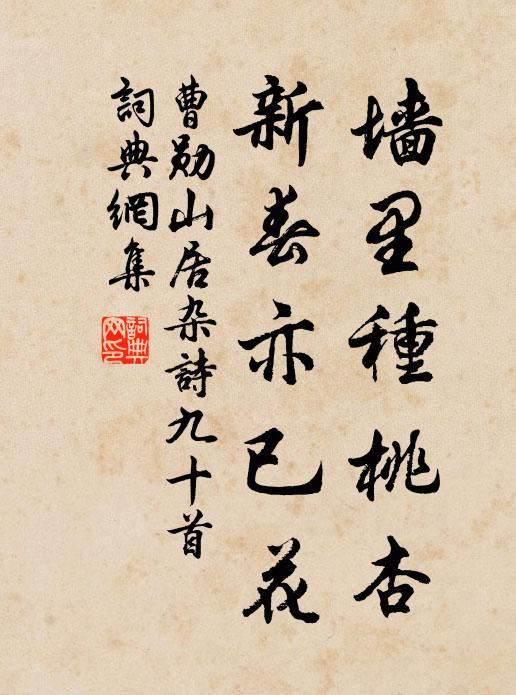 墙里種桃杏
新春亦已花
曹勋山居杂詩九十首
詞典網集
詞典网印